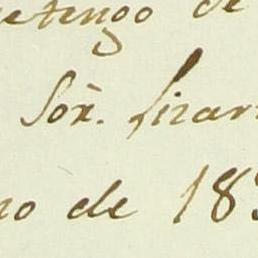 etengo de
Sôr. Lizar
no de 18